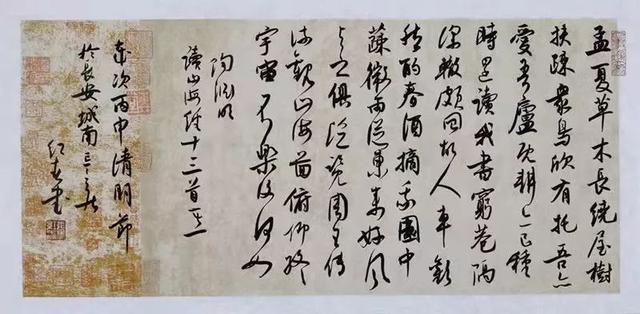 孟夏草木長繞屋樹
扶疏衆鳥欣有托吾亦
愛吾廬既耕亦已種
時還讀我書窮巷隔
深轍頗回故人車歡
然酌春酒摘我園中
蔬微雨從東來好風
與之俱泛覽周王傳
流觀山海圖俯仰終
宇宙不樂復何如
陶淵明
讀山海經十三首其一
歲次丙申清明節
於長安城南
書